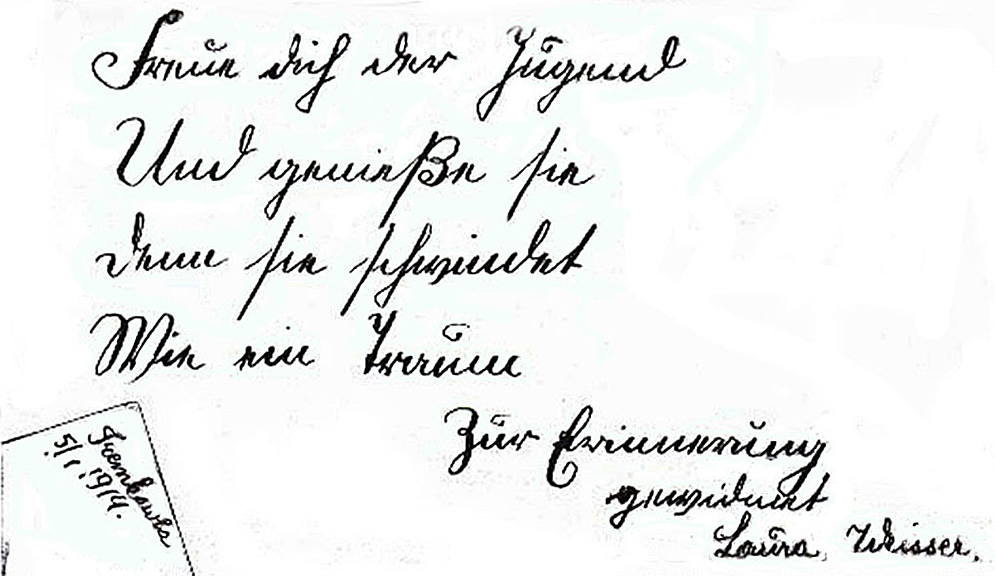 Freue dich der Jugend
Und genieße sie
denn sie schwindet
Wie ein Traum
Zur Erinnerung
gewidmet
Laura Weisser.
Trembowla
5/1.1914.